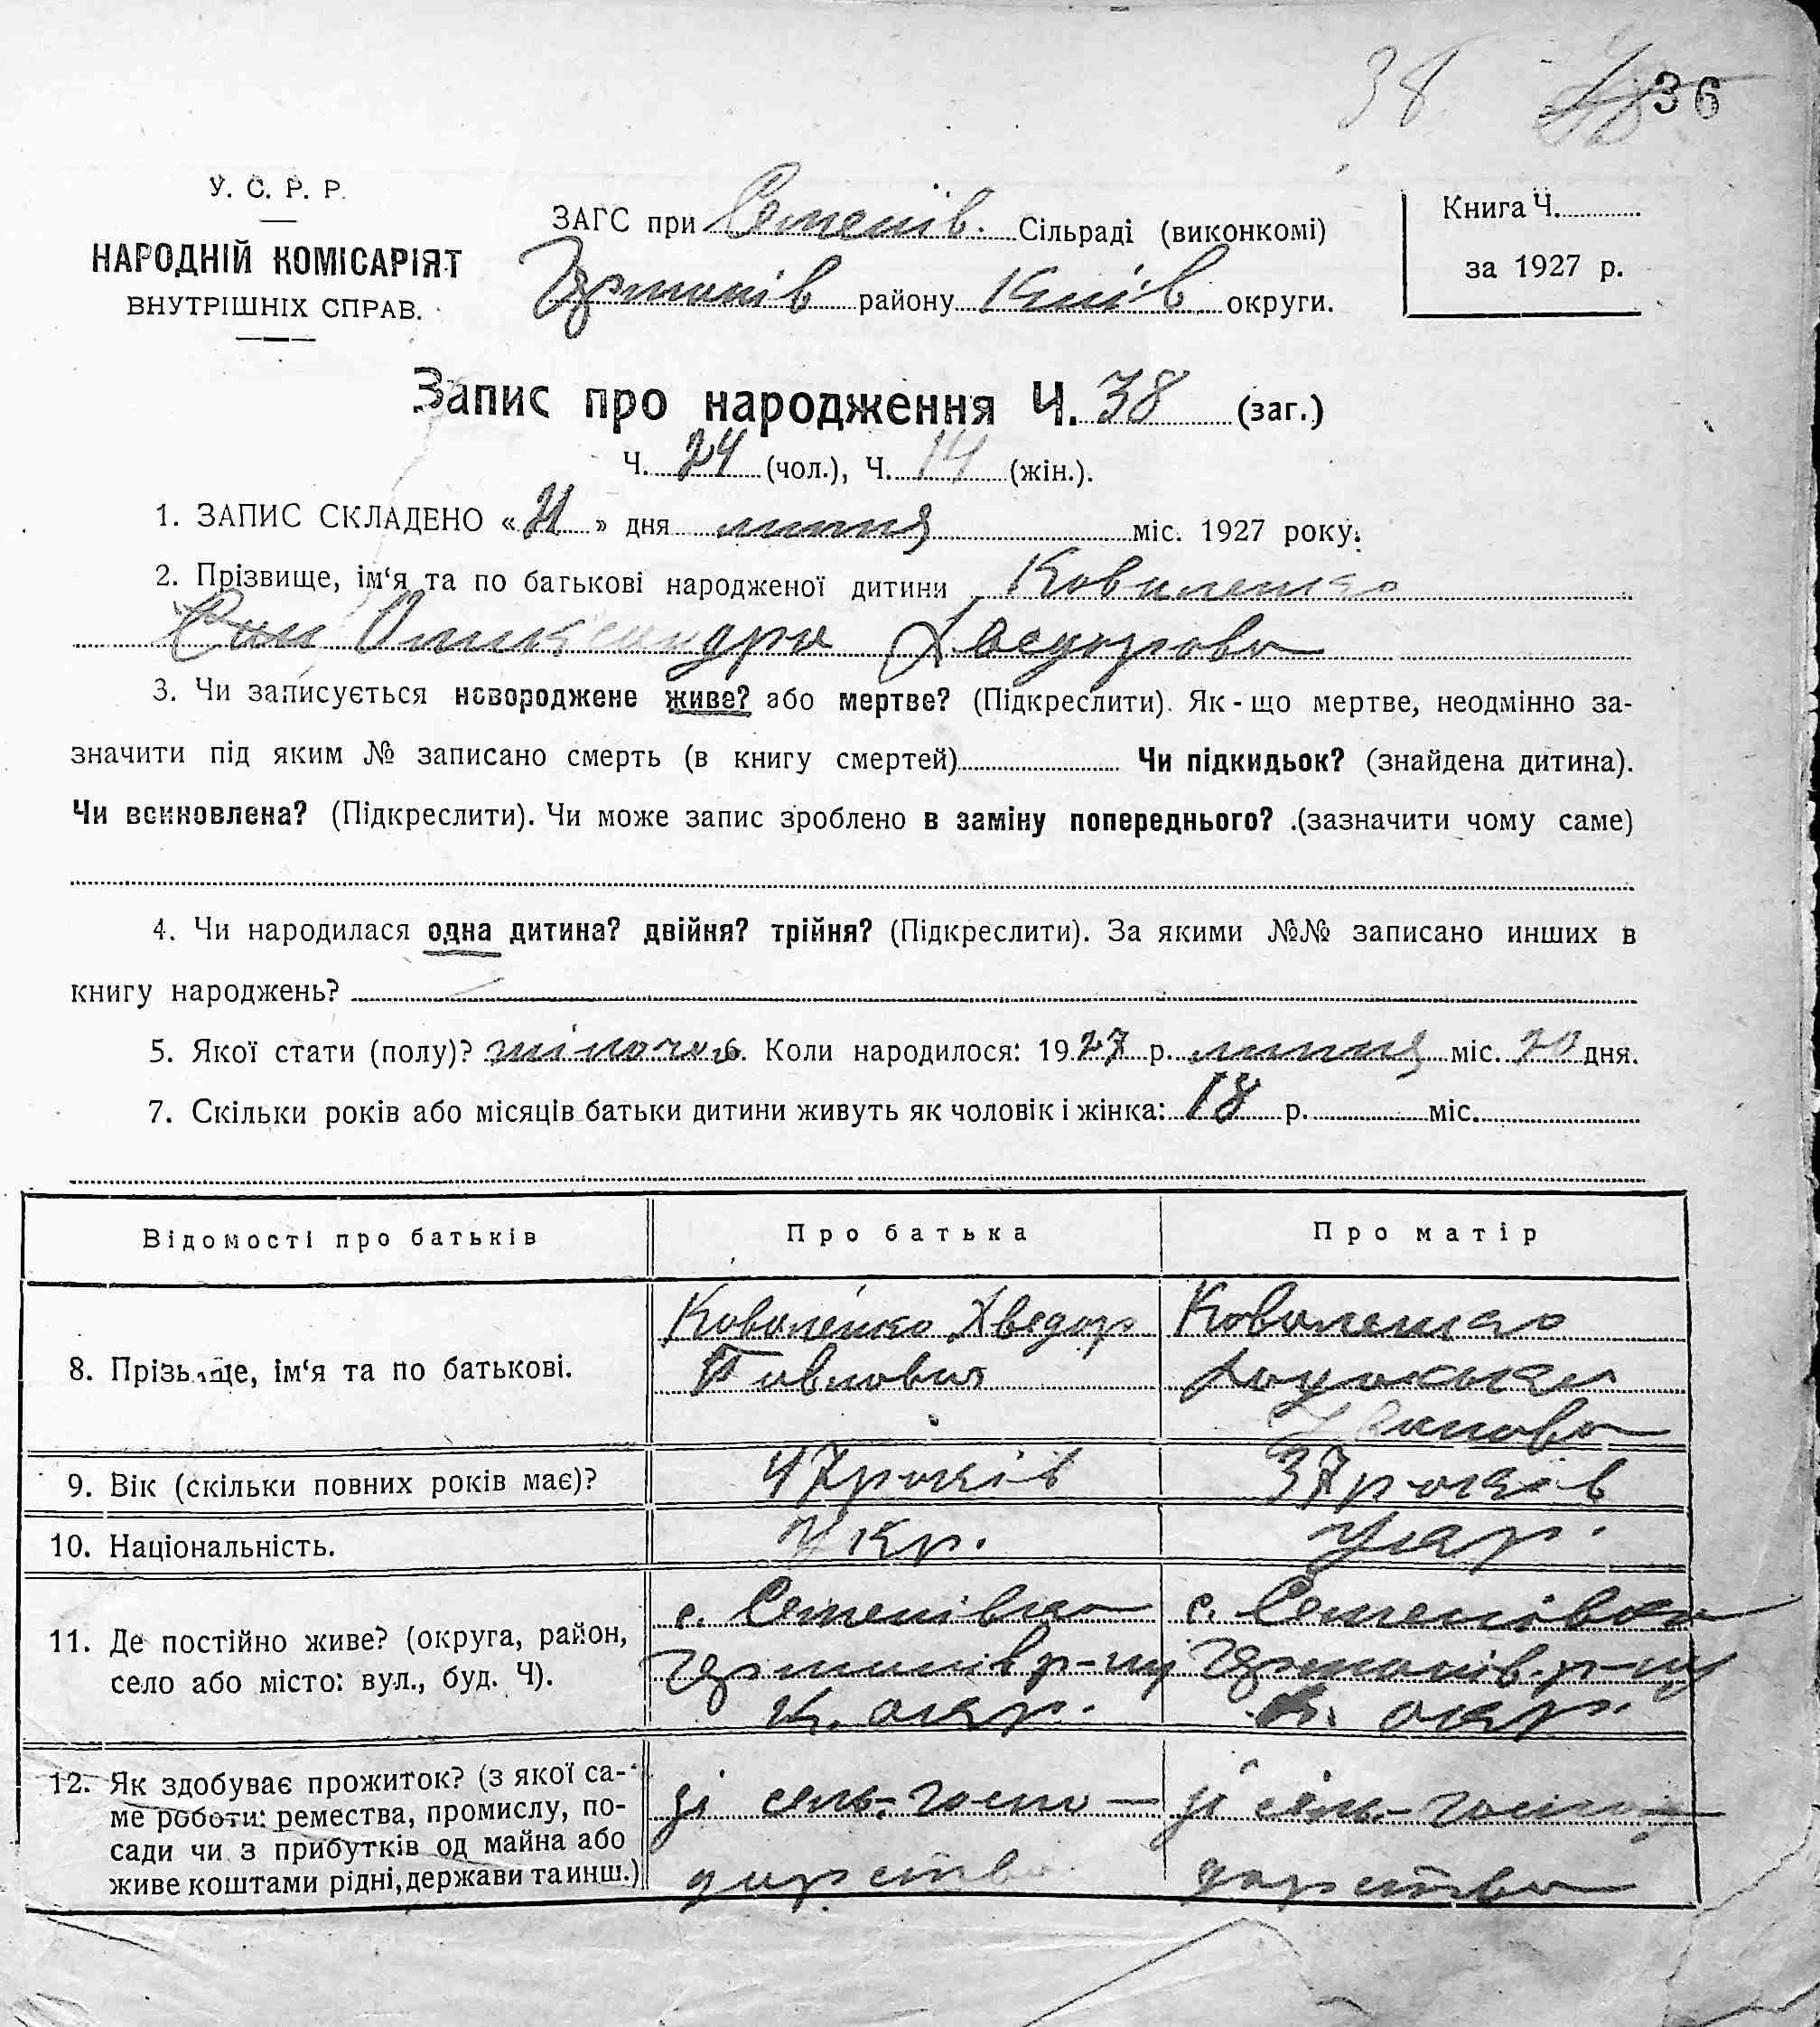 38 48 36
У. С. Р. Р.
НАРОДНІЙ КОМІСАРІЯТ
ВНУТРІШНІХ СПРАВ.
ЗАГС при Семенів. Сільраді (виконкомі)
району Київ округи.
Книга Ч.
за 1927 р.
Запис про народження Ч. 38 (заг.)
Ч. 24 (чол.), Ч. 14 (жін.).
1. ЗАПИС СКЛАДЕНО « » дня липня міс. 1927 року.
2. Прізвище, ім‘я та по батькові народженої дитини Коваленко
Олександра
3. Чи записується новороджене живе? або мертве? (Підкреслити). Як-що мертве, неодмінно за-
значити під яким № записано смерть (в книгу смертей) Чи підкидьок? (знайдена дитина).
Чи всиновлена? (Підкреслити). Чи може запис зроблено в заміну попереднього? (зазначити чому саме)
4. Чи народилася одна дитина? двійня? трійня? (Підкреслити). За якими №№ записано инших в
книгу народжень?
5. Якої стати (полу)? жіночої. Коли народилося: 1927 р. липня міс. 20 дня.
7. Скільки років або місяців батьки дитини живуть як чоловік і жінка: 18 р. міс.
Відомості про батьків Про батька Про матір
8. Прізвище, ім‘я та по батькові.
Коваленко Хведор
Павлович
Коваленко
Іванова
9. Вік (скільки повних років має)? 47 років 37 років
10. Національність. Укр. Укр.
11. Де постійно живе? (округа, район,
село або місто: вул., буд. Ч).
с. Семенівка
р-ну
К. окр.
с. Семенівка
р-ну
К. окр.
12. Як здобуває прожиток? (з якої са-
ме роботи: ремества, промислу, по-
сади чи з прибутків од майна або
живе коштами рідні, держави та инш.)
зі сель.-госпо-
дарства
зі сель.-госпо-
дарства